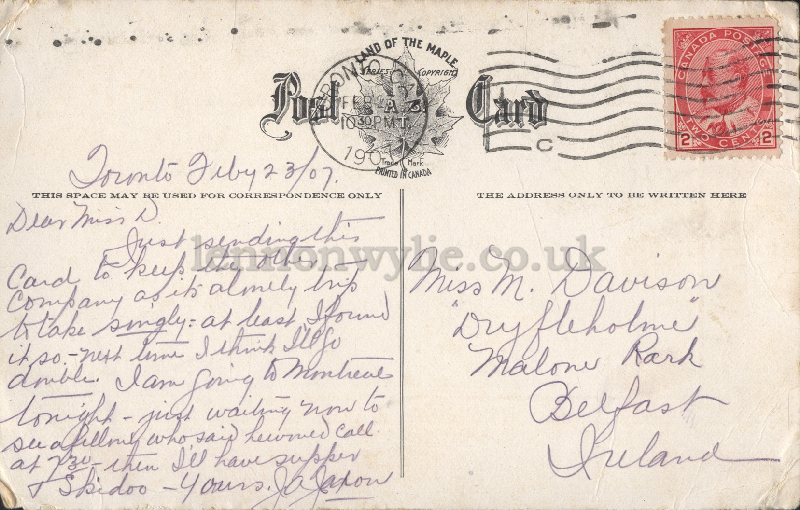 LAND OF THE MAPLE
SERIES COPYRIGHT
Post Card
TORONTO, ONT.
FEB
10 30 PM
190
Trade Mark
PRINTED IN CANADA
C
CANADA POSTAGE
2 TWO CENTS 2
Toronto Feby 23/07.
THIS SPACE MAY BE USED FOR CORRESPONDENCE ONLY
Dear Miss D.
Just sending this
Card to keep the other
Company as its a lonely trip
to take singly: at least I found
it so, - next time I think I'll go
double. I am going to Montreal
tonight - just waiting now to
see a fellow who said he would call
at 730 - then I'll have supper
& Skidoo - Yours. J.A.
THE ADDRESS ONLY TO BE WRITTEN HERE
Miss M. Davison
"Dryfleholme"
Malone Park
Belfast
Ireland
lennonwylie.co.uk